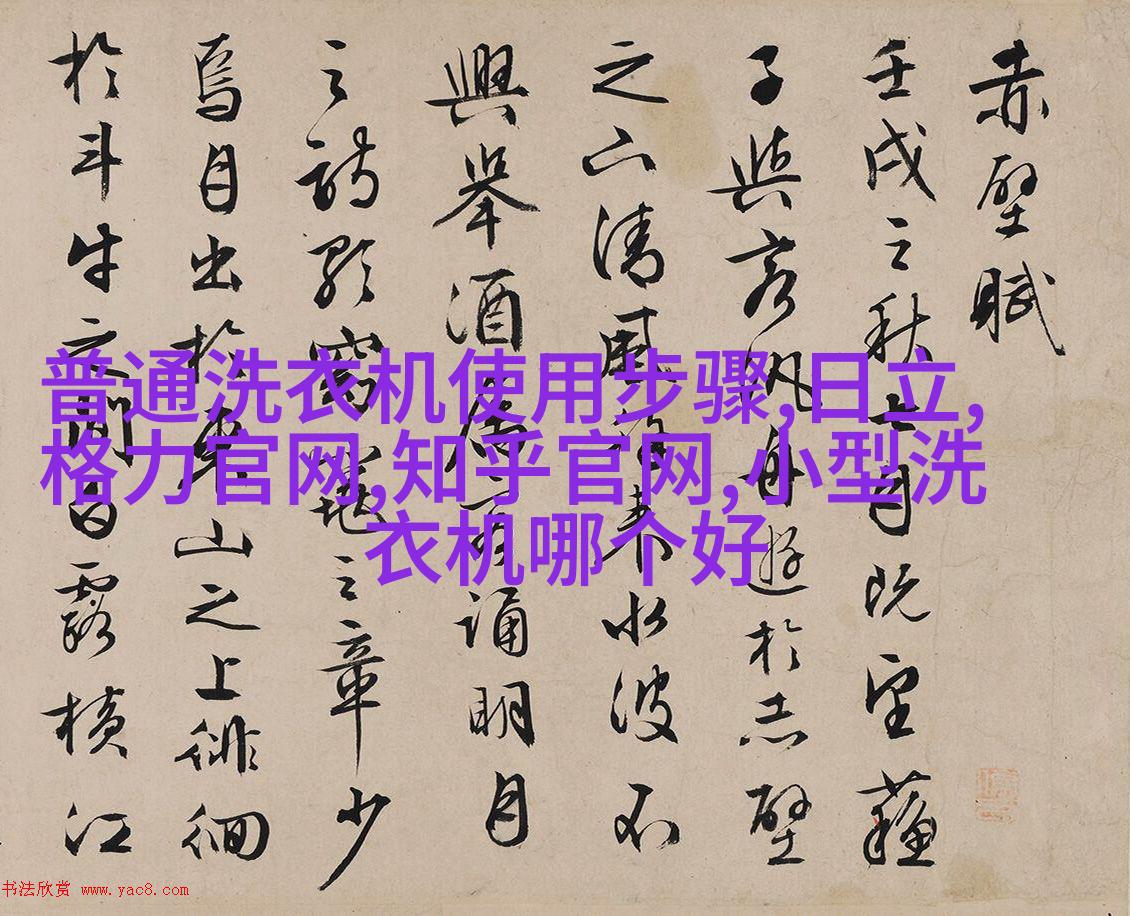 赤壁賦
壬戌之秋七月既望蘇
子與客汎舟遊於赤壁
之下清風徐來水波不
興舉酒屬客誦明月
之詩歌窈窕之章少
焉月出於東山之上徘徊
於斗牛之間白露橫江
普通洗衣机使用步骤,日立,
格力官网,知乎官网,小型洗
衣机哪个好
书法欣赏 www.yac8.com